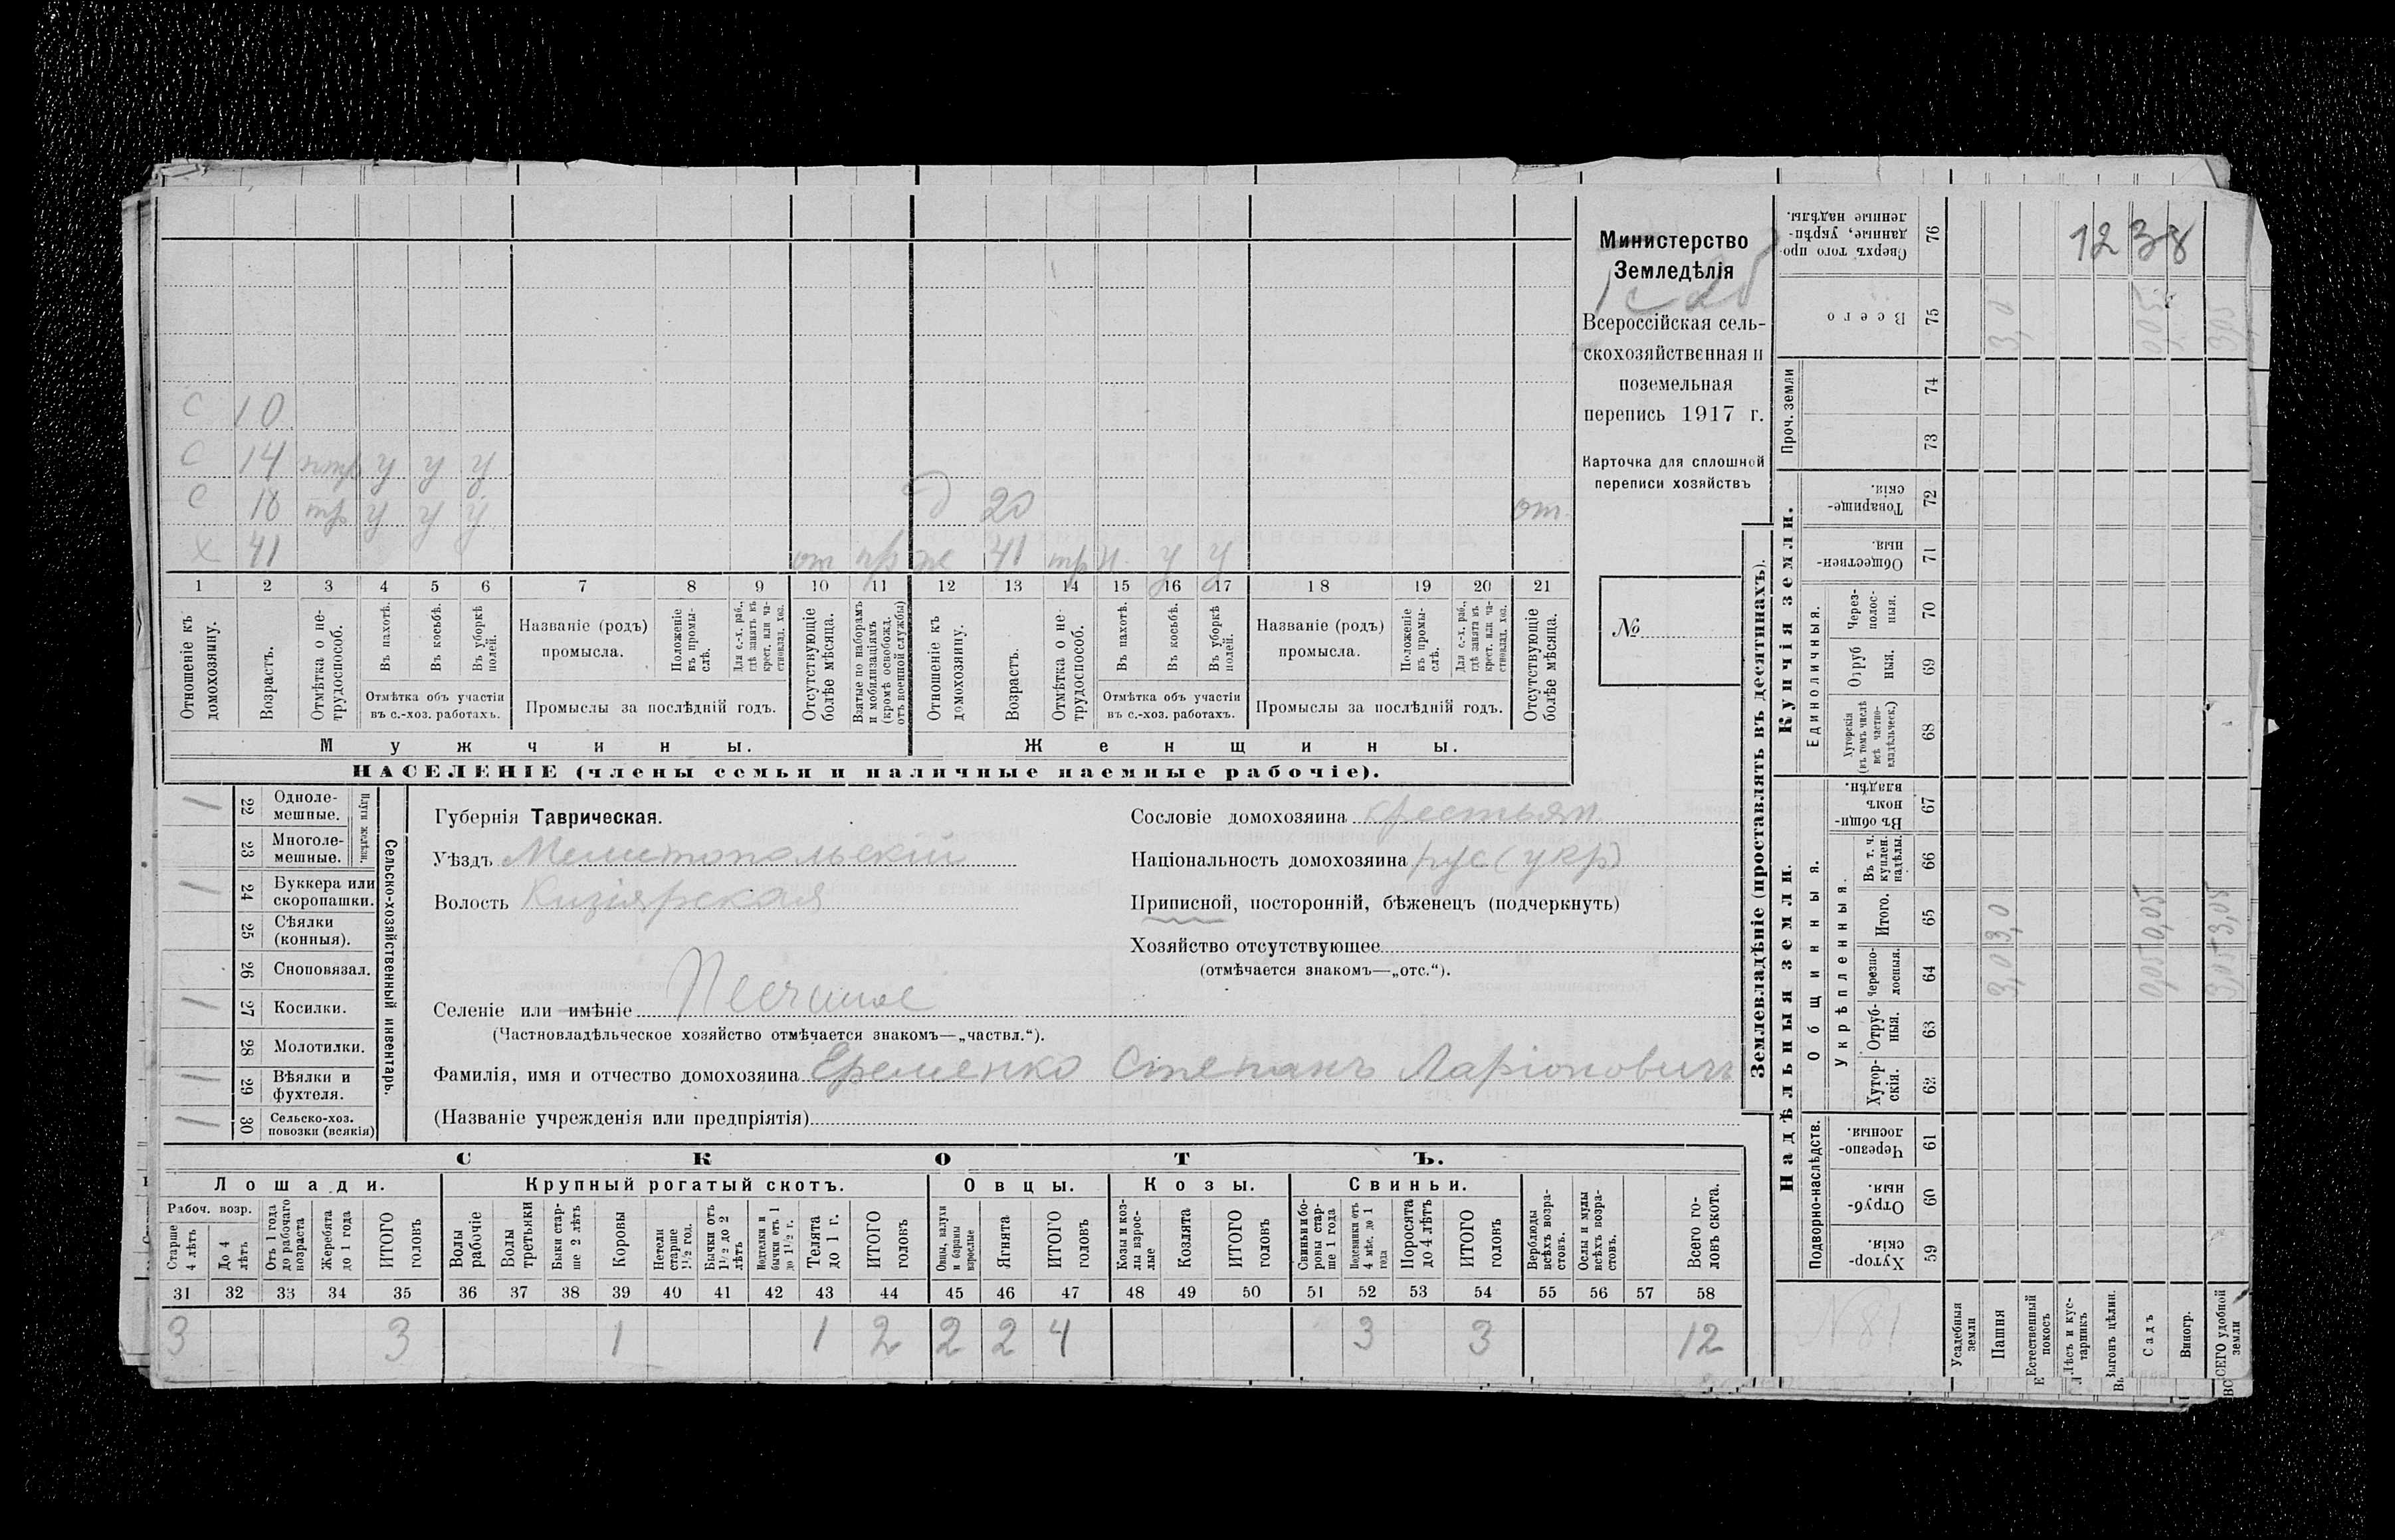 Министерство
Земледѣлія
Всероссійская сель-
скохозяйственная и
поземельная
перепись 1917 г.
Карточка для сплошной
переписи хозяйствъ
№
С 10
С 14 птр у у у
С 18 тр у у у д 20 от
Х 41 от пр ж 41 тр у у
1 2 3 4 5 6 7 8 9 10 11 12 13 14 15 16 17 18 19 20 21
Отношеніе къ домохозяину.
Возрастъ.
Отмѣтка о не-трудоспособ.
Въ пахотѣ.
Въ косьбѣ.
Въ уборкѣ полей.
Отмѣтка объ участіи
въ с.-хоз. работахъ.
Названіе (родъ)
промысла.
Положеніе въ промы-слѣ.
Для с.-х. раб., гдѣ занятъ въ крест. или ча-стновлад. хоз.
Промыслы за послѣдній годъ.
Отсутствующіе болѣе мѣсяца.
Взятые по наборамъ и мобилизаціямъ (кромѣ освобожд. отъ военной службы)
Отношеніе къ домохозяину.
Возрастъ.
Отмѣтка о не-трудоспособ.
Въ пахотѣ.
Въ косьбѣ.
Въ уборкѣ полей.
Отмѣтка объ участіи
въ с.-хоз. работахъ.
Названіе (родъ)
промысла.
Положеніе въ промы-слѣ.
Для с.-х. раб., гдѣ занята въ крест. или ча-стновлад. хоз.
Промыслы за послѣдній годъ.
Отсутствующіе болѣе мѣсяца.
Мужчины. Женщины.
НАСЕЛЕНІЕ (члены семьи и наличные наемные рабочіе).
1 22 Одноле-мешные.
23 Многоле-мешные.
Плуги желѣзн.
1 24 Буккера или скоропашки.
25 Сѣялки (конныя).
26 Сноповязал.
1 27 Косилки.
28 Молотилки.
1 29 Вѣялки и фухтеля.
1 30 Сельско-хоз. повозки (всякія)
Сельско-хозяйственный инвентарь.
Губернія Таврическая.
Уѣздъ Мелитопольскій
Волость Кизіярская
Сословіе домохозяина крестьян.
Національность домохозяина рус (укр)
Приписной, посторонній, бѣженецъ (подчеркнуть)
Хозяйство отсутствующее
(отмѣчается знакомъ—„отс.“).
Селеніе или имѣніе Песчаное
(Частновладѣльческое хозяйство отмѣчается знакомъ—„частвл.“).
Фамилія, имя и отчество домохозяина Еременко Степанъ Ларіоновичъ
(Названіе учрежденія или предпріятія)
СКОТЪ.
Лошади. Крупный рогатый скотъ. Овцы. Козы. Свиньи.
Рабоч. возр.
Старше 4 лѣтъ
До 4 лѣтъ
Отъ 1 года до рабочаго возраста
Жеребята до 1 года
ИТОГО головъ
Волы рабочіе
Волы третьяки
Быки стар-ше 2 лѣтъ
Коровы
Нетели старше 1½ год.
Бычки отъ 1½ до 2 лѣтъ
Подтелки и бычки отъ 1 до 1½ г.
Телята до 1 г.
ИТОГО головъ
Овцы, валухи и бараны взрослые
Ягнята
ИТОГО головъ
Козы и коз-лы взрос-лые
Козлята
ИТОГО головъ
Свиньи и бо-ровы стар-ше 1 года
Подсвинки отъ 4 мѣс. до 1 года
Поросята до 4 лѣтъ
ИТОГО головъ
Верблюды всѣхъ возра-стовъ.
Ослы и мулы всѣхъ возра-стовъ.
Всего го-ловъ скота.
31 32 33 34 35 36 37 38 39 40 41 42 43 44 45 46 47 48 49 50 51 52 53 54 55 56 57 58
3 3 1 1 2 2 2 4 3 3 12
Землевладѣніе (проставлять въ десятинахъ).
Надѣльныя земли. Купчія земли.
Проч. земли
Сверхъ того про-данные, укрѣп-ленные надѣлы. 76
1238
Всего 75 3,0 0,05 3,05
74
73
Товарище-скія. 72
Обществен-ныя. 71
Единоличныя.
Через-полос-ныя. 70
Отруб ныя. 69
Хуторскія (въ томъ числѣ всѣ частно-владѣльческ.) 68
Общинныя.
Укрѣпленныя.
Въ общи-номъ владѣн. 67
Въ т. ч. куплен. надѣлы 66
Итого. 65 3,0 0,05 3,05
Черезпо-лосныя. 64 3,0 0,05 3,05
Отруб-ныя. 63
Хутор-скія. 62
Подворно-наслѣдств.
Черезпо-лосныя. 61
Отруб-ныя. 60
Хутор-скія. 59
№ 81
Усадебныя земли
Пашня
Естественный покосъ
Лѣсъ и кус-тарникъ
Выгонъ цѣлин.
Садъ
Виногр.
ВСЕГО удобной земли